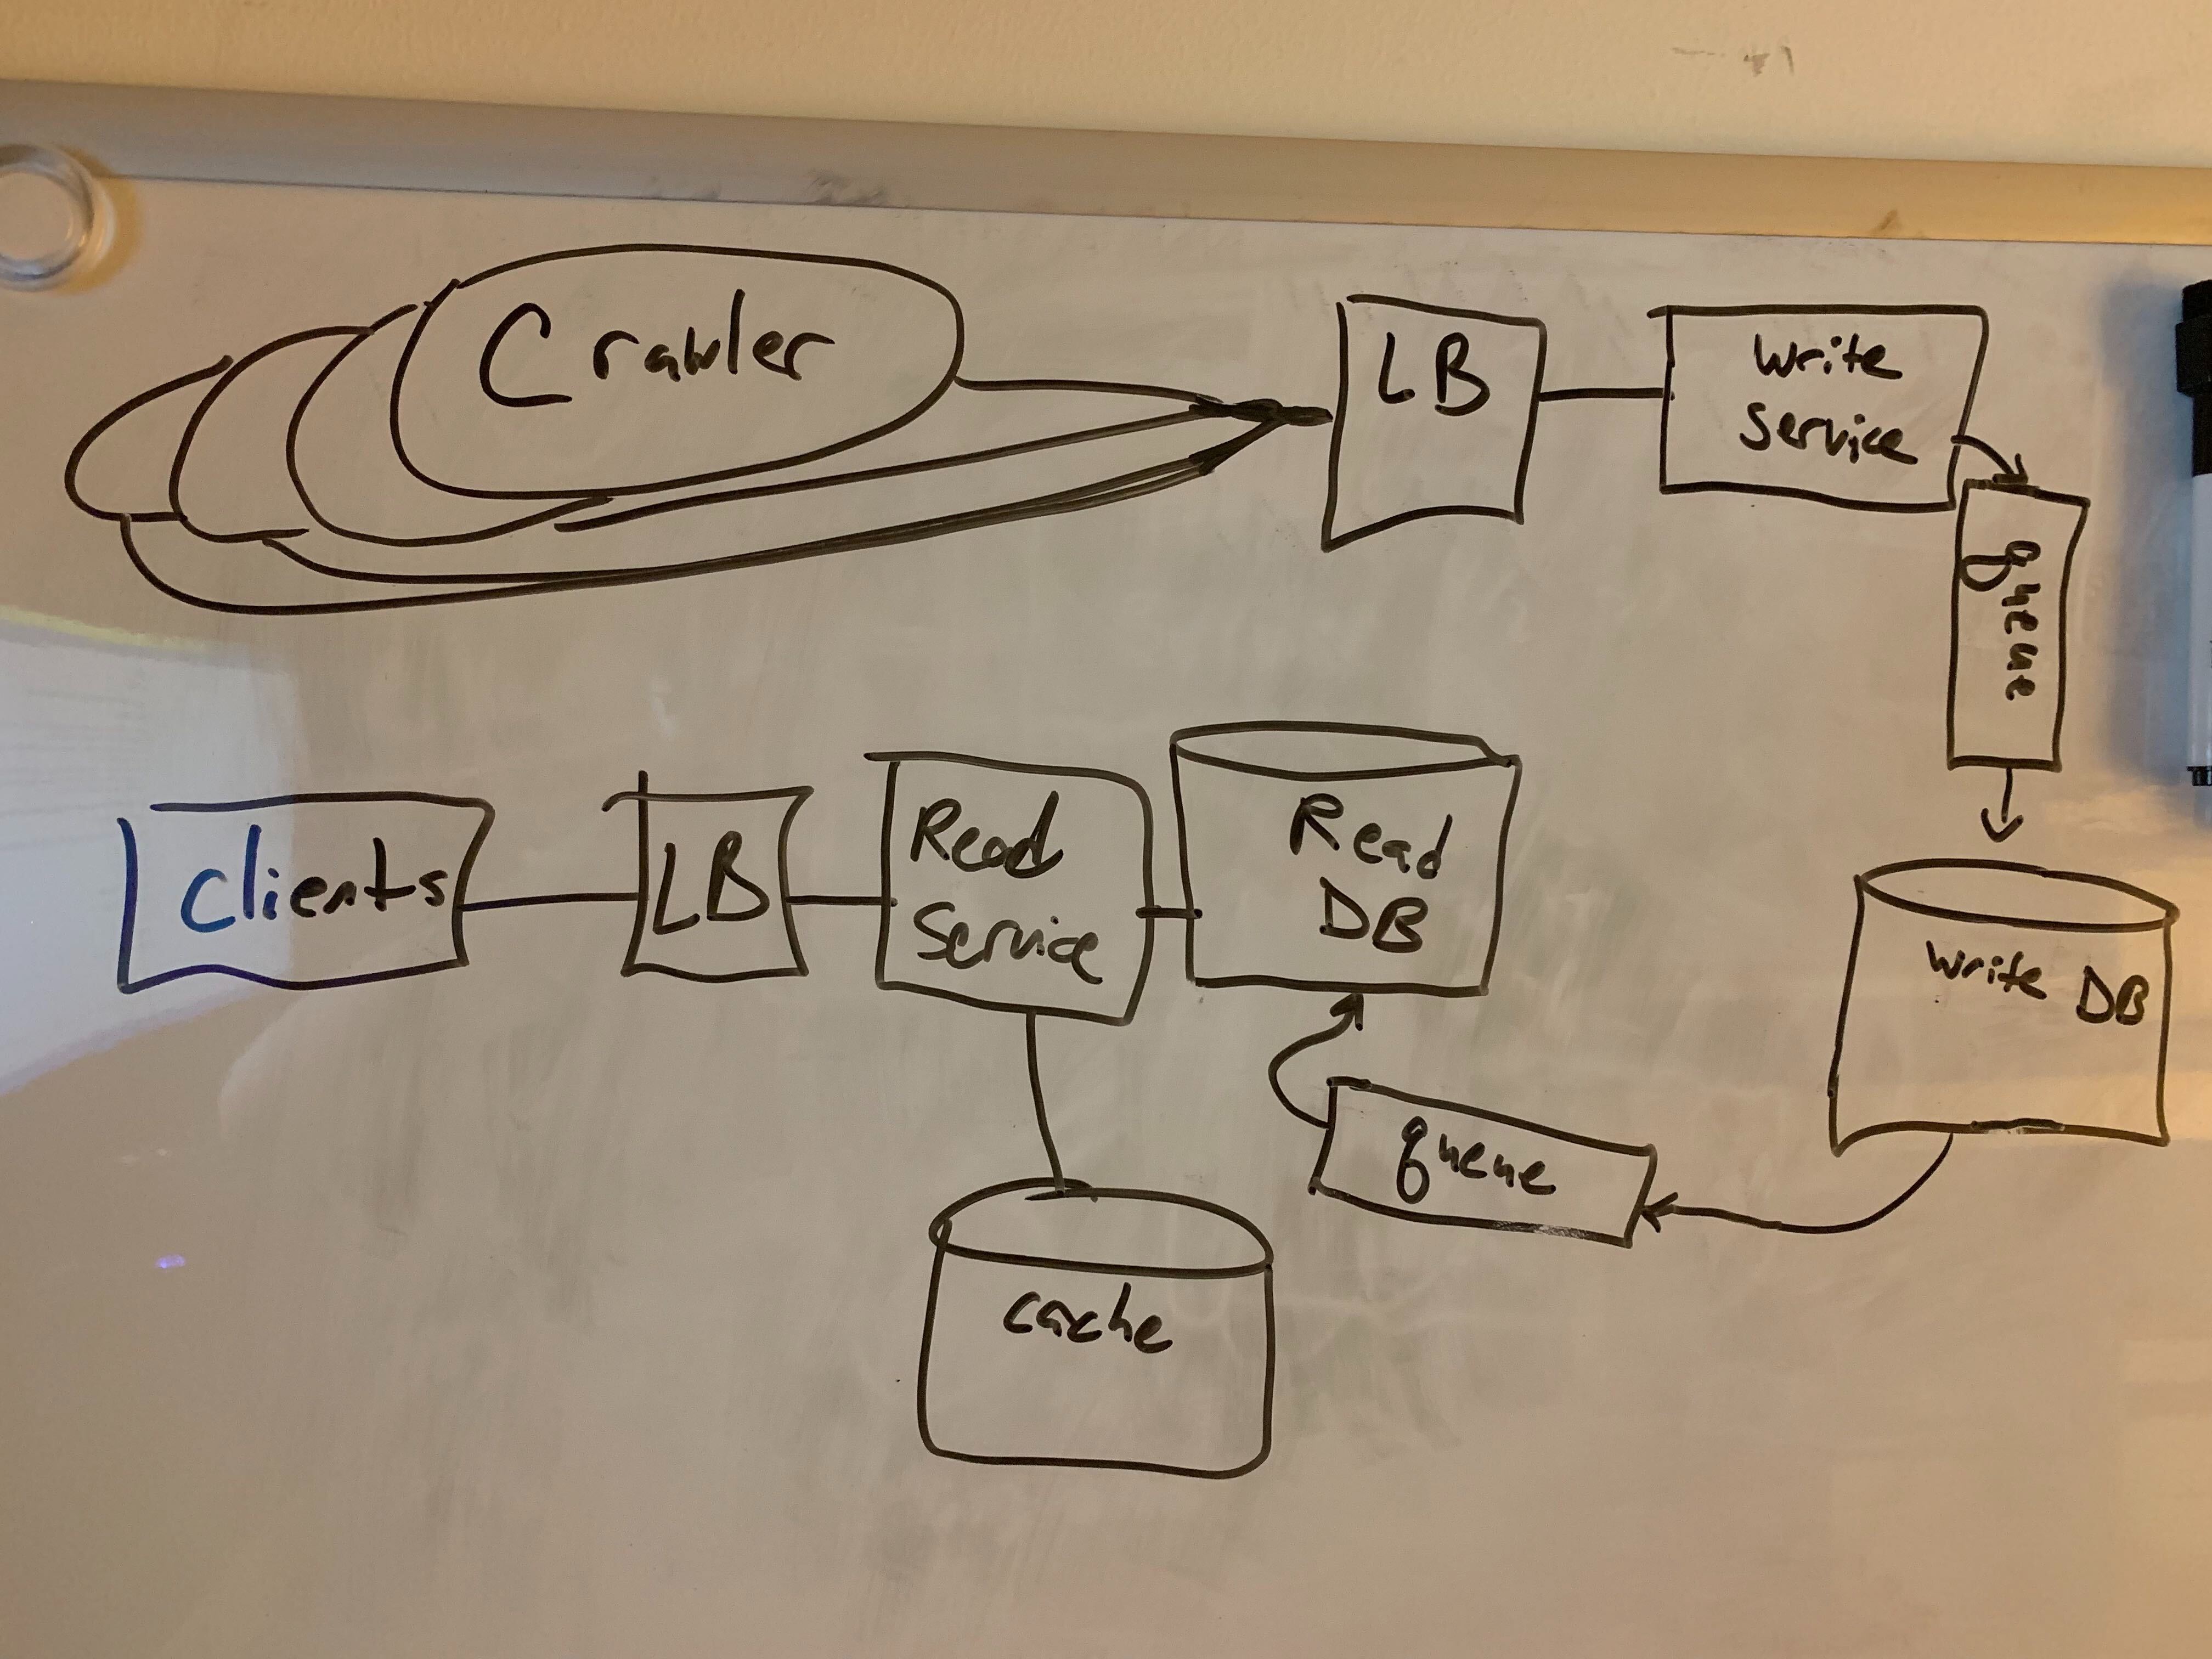 Crawler
LB
Write
Service
queue
Clients
LB
Read
Service
Read
DB
Write DB
queue
cache